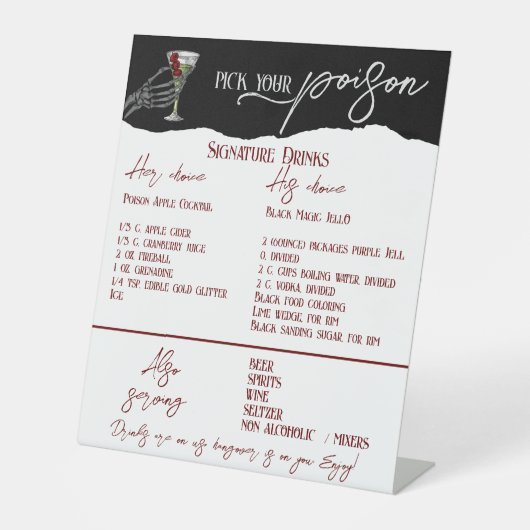 PICK YOUR poison
SIGNATURE DRINKS
Her choice
POISON APPLE COCKTAIL
1/3 C. APPLE CIDER
1/3 C. CRANBERRY JUICE
2 OZ. FIREBALL
1 OZ. GRENADINE
1/4 TSP. EDIBLE GOLD GLITTER
ICE
His choice
BLACK MAGIC JELLO
2 (6OUNCE) PACKAGES PURPLE JELL
O, DIVIDED
2 C. CUPS BOILING WATER, DIVIDED
2 C. VODKA, DIVIDED
BLACK FOOD COLORING
LIME WEDGE, FOR RIM
BLACK SANDING SUGAR, FOR RIM
Also
serving
BEER
SPIRITS
WINE
SELTZER
NON ALCOHOLIC / MIXERS
Drinks are on us hangover is on you Enjoy!